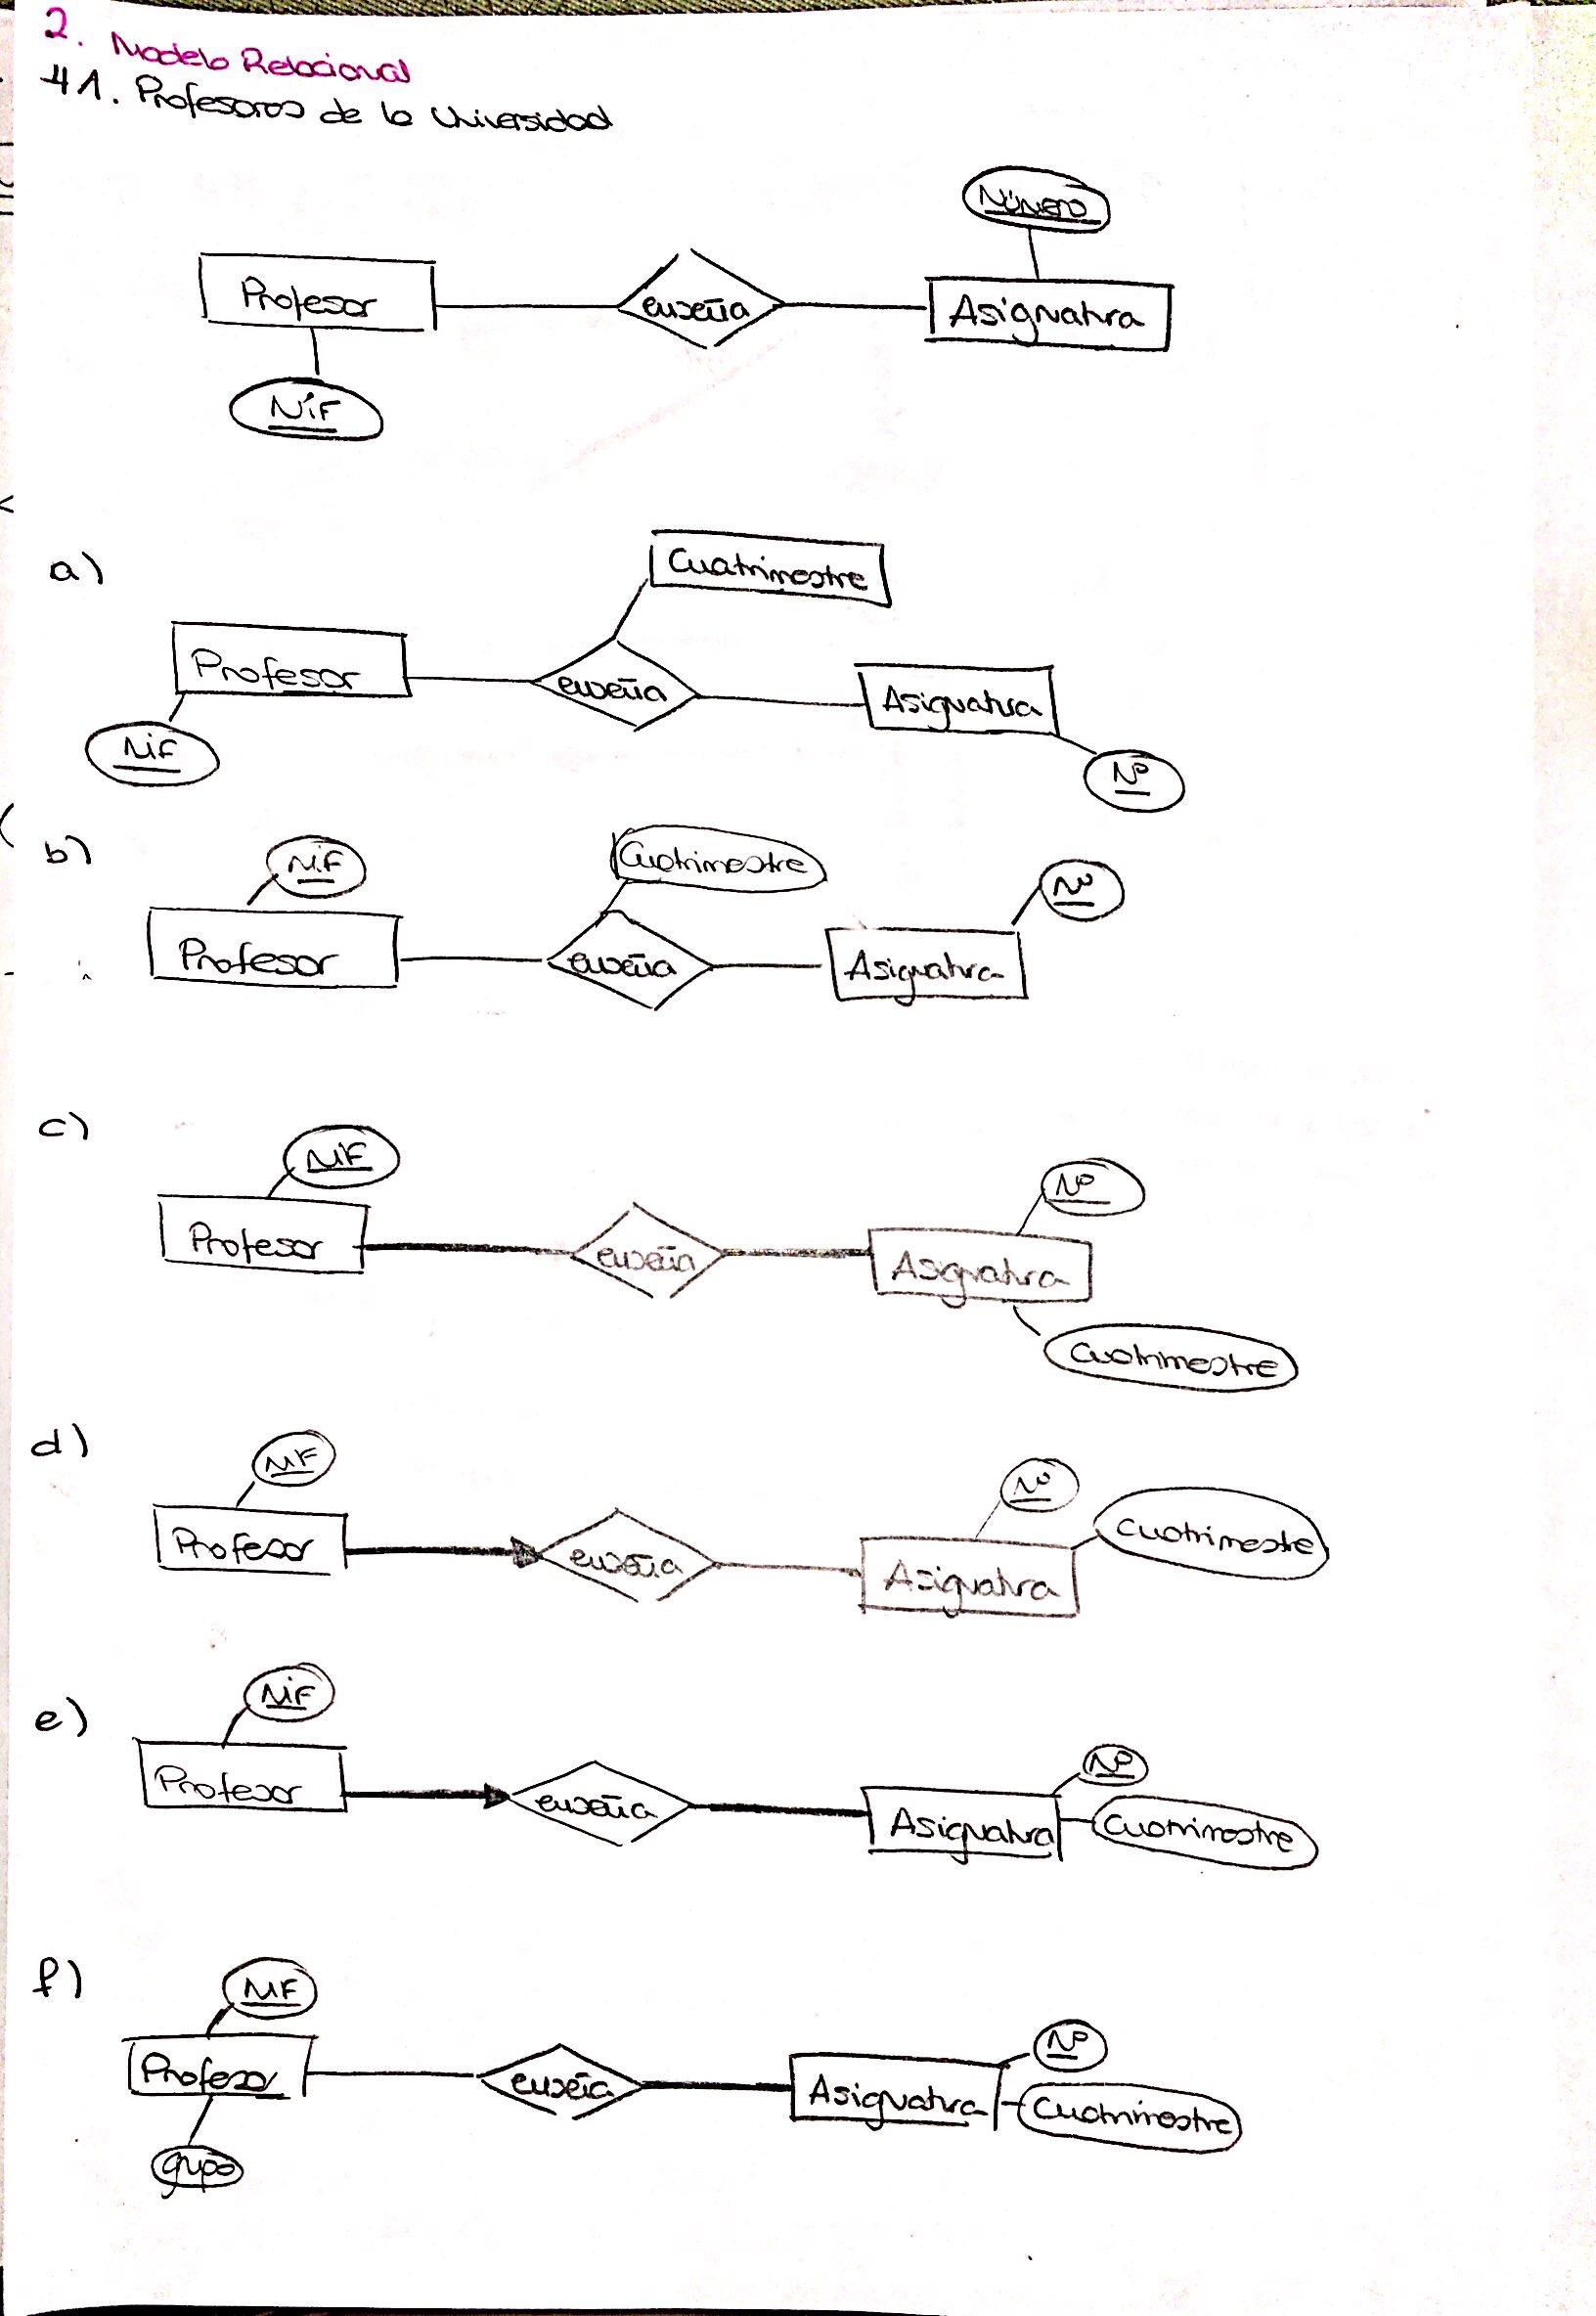 2. Modelo Relacional
41. Profesores de la Universidad
Número
Profesor
enseña
Asignatura
NiF
a)
Cuatrimestre
Profesor
enseña
Asignatura
NiF
Nº
b)
NiF
Cuatrimestre
Nº
Profesor
enseña
Asignatura
c)
NiF
Nº
Profesor
enseña
Asignatura
Cuatrimestre
d)
NiF
Nº
Cuatrimestre
Profesor
enseña
Asignatura
e)
NiF
Nº
Profesor
enseña
Asignatura
Cuatrimestre
f)
NiF
Nº
Profesor
enseña
Asignatura
Cuatrimestre
grupo